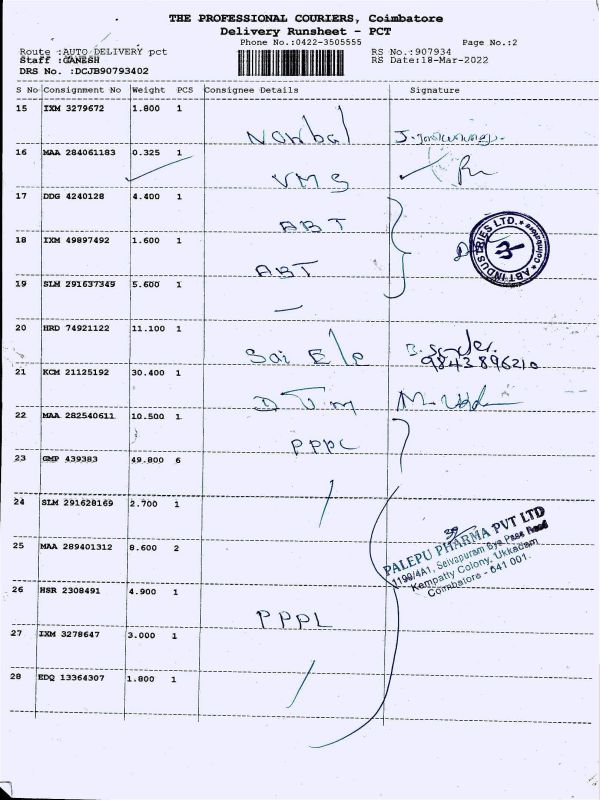 THE PROFESSIONAL COURIERS, Coimbatore
Delivery Runsheet - PCT
Phone No.:0422-3505555 Page No.:2
Route :AUTO DELIVERY pct RS No.:907934
Staff :GANESH RS Date:18-Mar-2022
DRS No. :DCJB90793402
S No Consignment No Weight PCS Consignee Details Signature
15 IXM 3279672 1.800 1
16 MAA 284061183 0.325 1
VMS
17 DDG 4240128 4.400 1
ABT
18 IXM 49897492 1.600 1
ABT INDUSTRIES LTD. Coimbatore
ABT
19 SLM 291637349 5.600 1
20 HRD 74921122 11.100 1
Sai Ele
9843896210
21 KCM 21125192 30.400 1
22 MAA 282540611 10.500 1
PPPL
23 GMP 439383 49.800 6
24 SLM 291628169 2.700 1
PALEPU PHARMA PVT LTD
1199/4A1, Selvapuram Bye Pass Road
Kempatty Colony, Ukkadam
Coimbatore - 641 001.
25 MAA 289401312 8.600 2
26 HSR 2308491 4.900 1
PPPL
27 IXM 3278647 3.000 1
28 EDQ 13364307 1.800 1